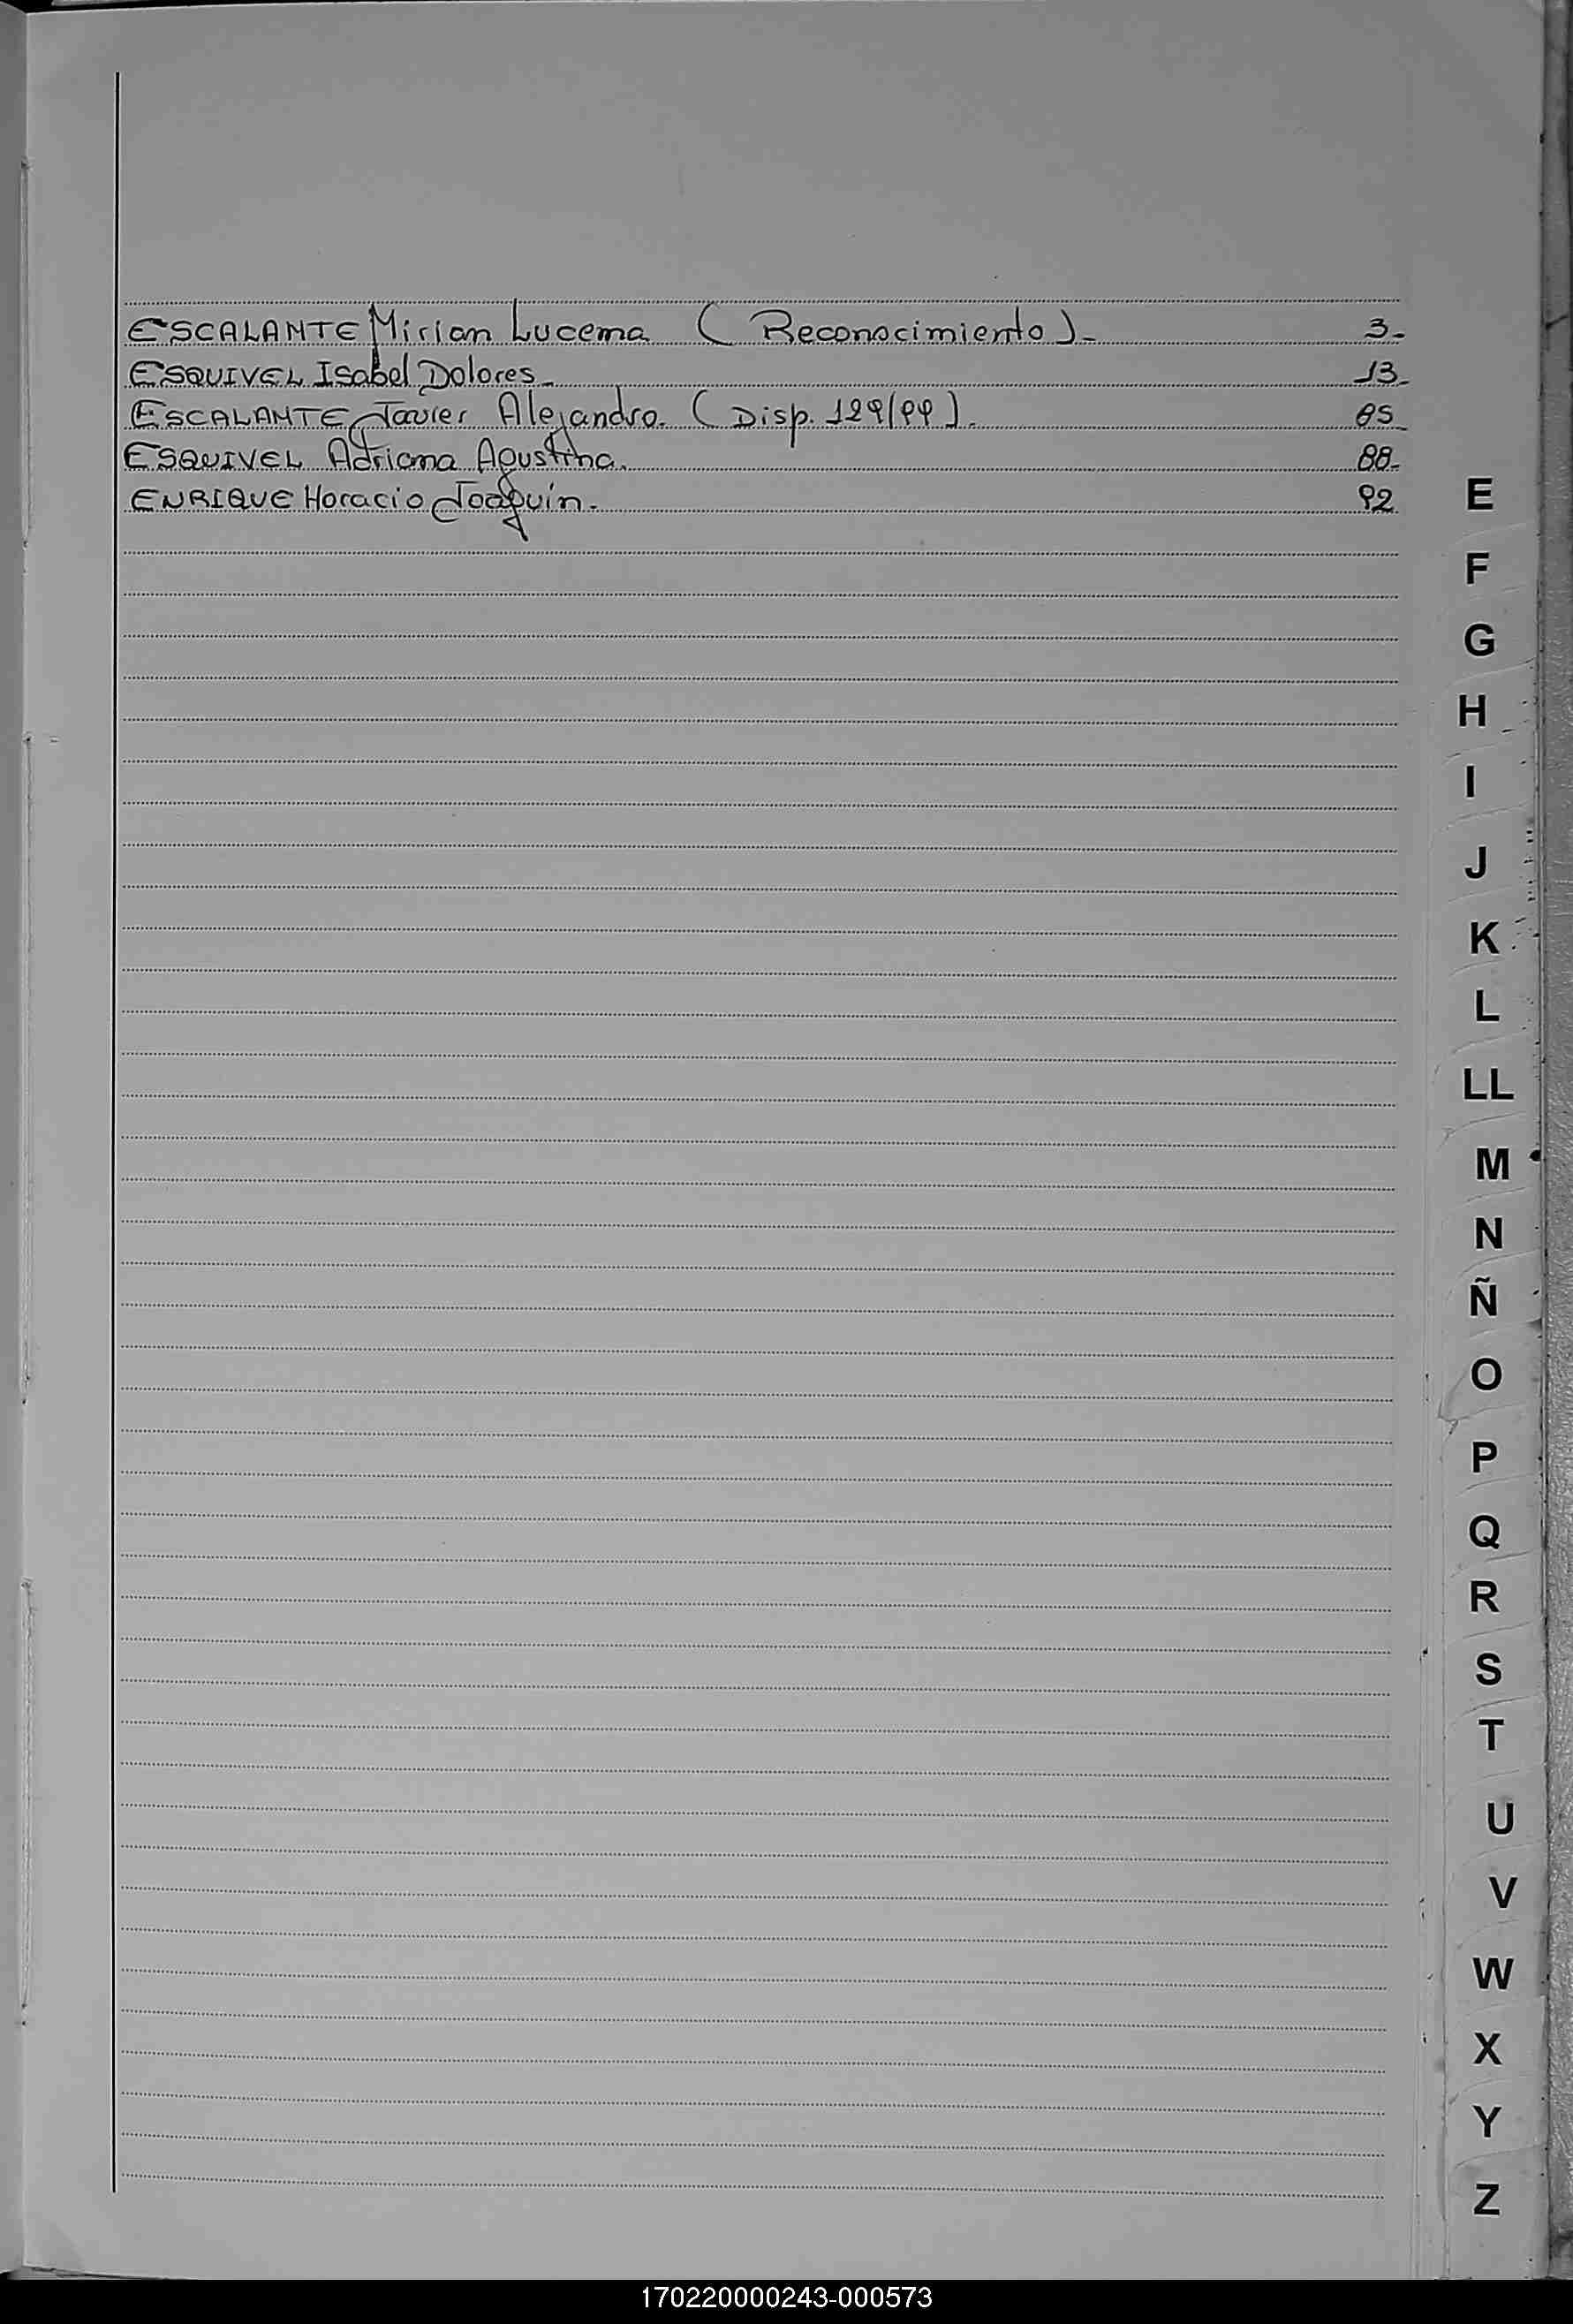 ESCALANTE Mirian Lucema ( Reconocimiento ).- 3.-
ESQUIVEL Isabel Dolores.- 13.-
ESCALANTE Javier Alejandro. ( Disp. 129/99 ). 85.-
ESQUIVEL Adriana Agustina. 88.-
ENRIQUE Horacio Joaquín.- 92
E
F
G
H
I
J
K
L
LL
M
N
Ñ
O
P
Q
R
S
T
U
V
W
X
Y
Z
170220000243-000573